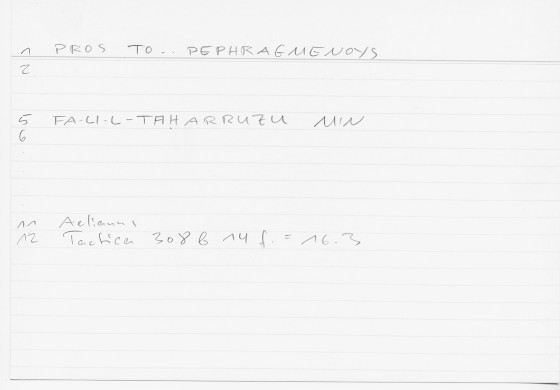 1 PROS TO.. PEPHRAGMENOYS
2
5 FA-LI-L-TAḤARRUZU MIN
6
11 Aelianus
12 Tactica 308 B 14 f. = 16.3